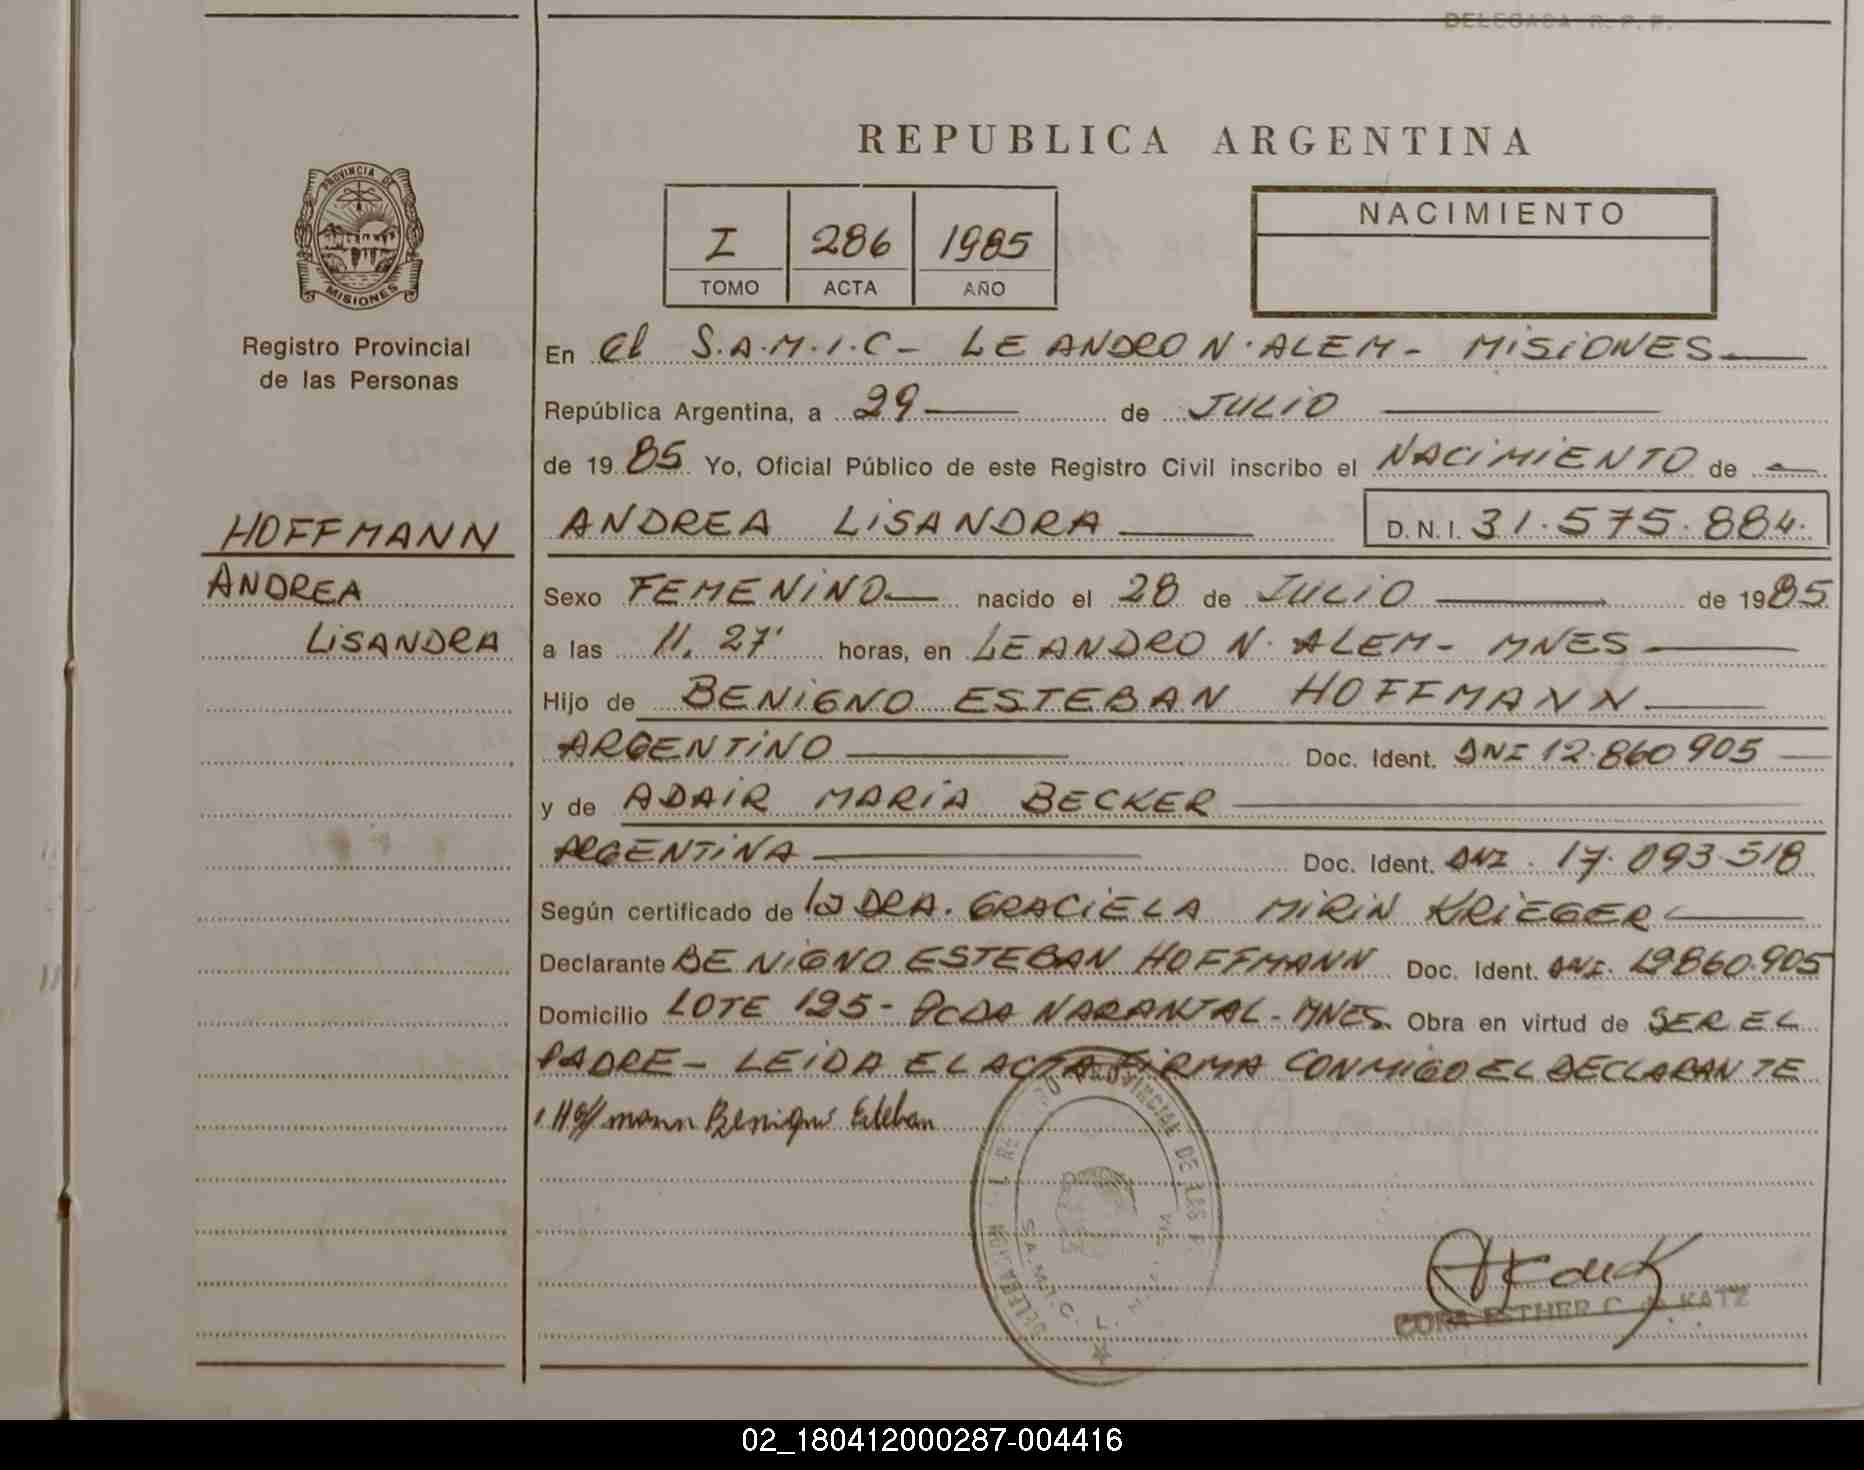 DELEGADA R.P.P.
REPUBLICA ARGENTINA
PROVINCIA DE
MISIONES
Registro Provincial
de las Personas
I 286 1985
TOMO ACTA AÑO
NACIMIENTO
En el S.A.M.I.C - LEANDRO N. ALEM - MISIONES
República Argentina, a 29 de JULIO
de 1985 Yo, Oficial Público de este Registro Civil inscribo el NACIMIENTO de
HOFFMANN
ANDREA
LISANDRA
ANDREA LISANDRA D.N.I. 31.575.884.
Sexo FEMENINO nacido el 28 de JULIO de 1985
a las 11,27' horas, en LEANDRO N. ALEM - MNES
Hijo de BENIGNO ESTEBAN HOFFMANN
ARGENTINO Doc. Ident. DNI 12.860905
y de ADAIR MARIA BECKER
ARGENTINA Doc. Ident. DNI. 17.093.518
Según certificado de la DRA. GRACIELA MIRIN KRIEGER
Declarante BENIGNO ESTEBAN HOFFMANN Doc. Ident. DNI. 12860.905
Domicilio LOTE 125 - PCDA NARANJAL - MNES. Obra en virtud de SER EL
PADRE - LEIDA EL ACTA FIRMA CONMIGO EL DECLARANTE
Hoffmann Benigno Esteban
PROVINCIAL DE LAS P.
S.A.M.I.C. L.
ESTHER C. de KATZ
02_180412000287-004416